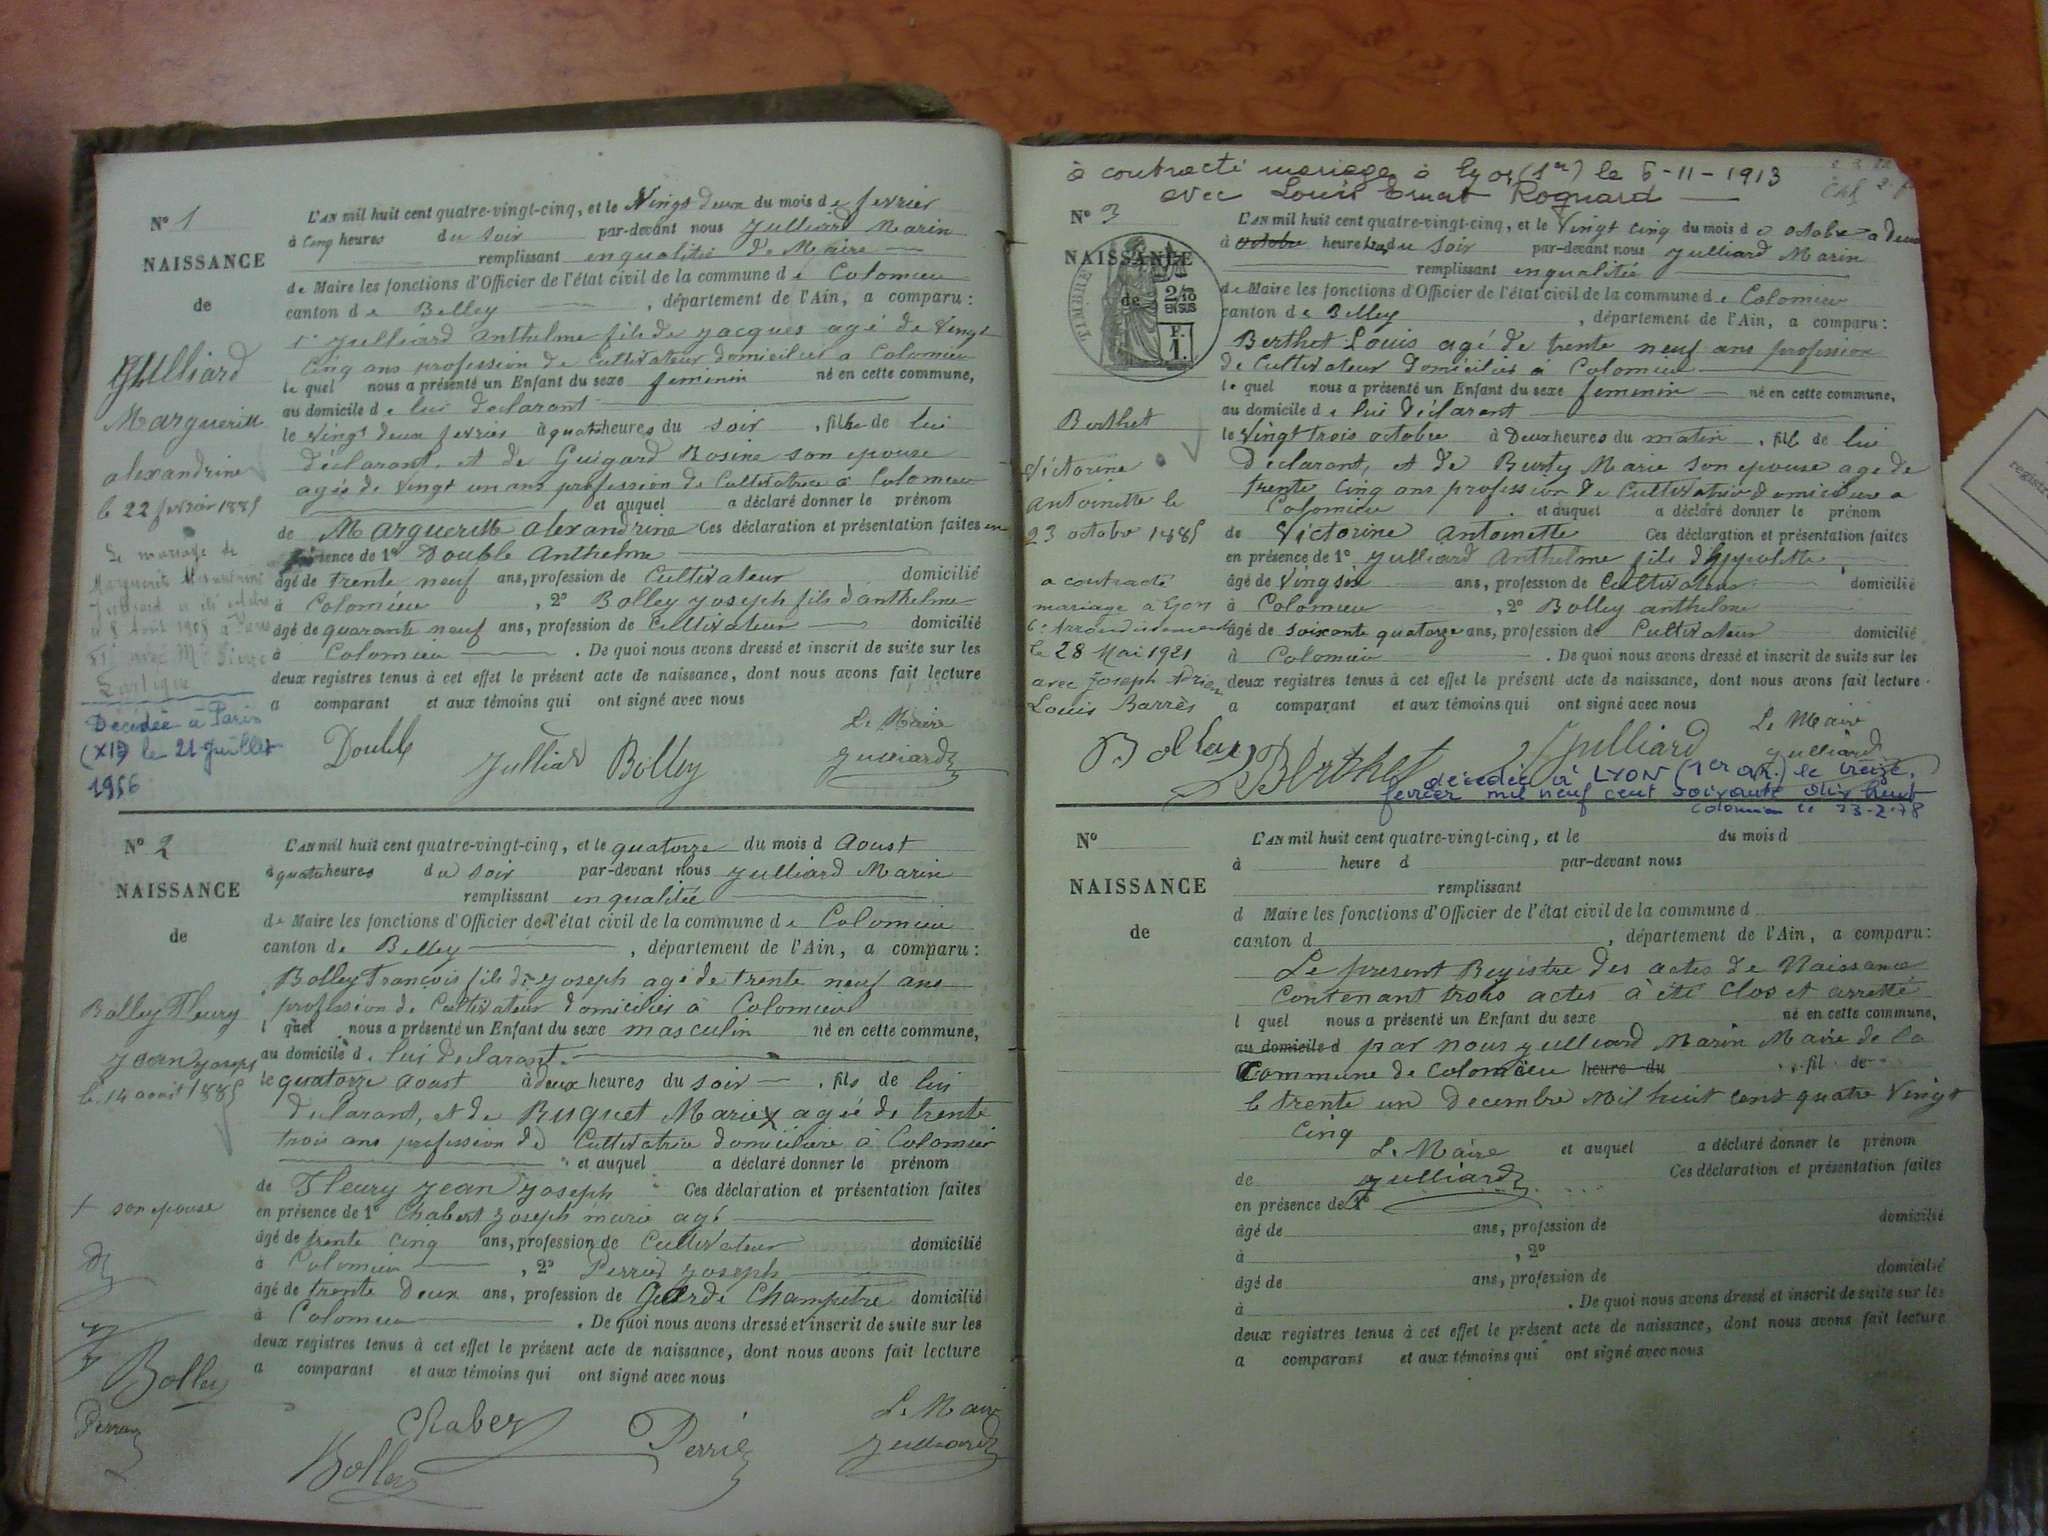 N° 1
NAISSANCE
de
Julliard
Marguerite
alexandrine
le 22 fevrier 1885
Le mariage de
Décédée à Paris
(XIe) le 21 Juillet
1956
L'AN mil huit cent quatre-vingt-cinq, et le Vingt deux du mois de fevrier
à Cinq heures du soir par-devant nous Julliard Marin
remplissant en qualitée de Maire
de Maire les fonctions d'Officier de l'état civil de la commune de Colomieu
canton de Belley , département de l'Ain, a comparu :
Julliard Anthelme fils de Jacques agé de Vingt
Cinq ans profession de Cultivateur domicilié a Colomieu
le quel nous a présenté un Enfant du sexe feminin né en cette commune,
au domicile de lui declarant
le Vingt deux fevrier à quatre heures du soir , fille de lui
déclarant, et de Guigard Rosine son epouse
agée de Vingt un ans profession de Cultivatrice à Colomieu
et auquel a déclaré donner le prénom
de Marguerite alexandrine Ces déclaration et présentation faites en
présence de 1° Double Anthelme
âgé de trente neuf ans, profession de Cultivateur domicilié
à Colomieu , 2° Bolley Joseph fils d'anthelme
âgé de quarante neuf ans, profession de Cultivateur domicilié
à Colomieu . De quoi nous avons dressé et inscrit de suite sur les
deux registres tenus à cet effet le présent acte de naissance, dont nous avons fait lecture
a comparant et aux témoins qui ont signé avec nous
Le Maire
Double Julliard Bolley Julliard
N° 2
NAISSANCE
de
Bolley Fleury
Jean Joseph
le 14 aout 1885
+ son epouse
Bolley
L'AN mil huit cent quatre-vingt-cinq, et le quatorze du mois d Aoust
à quatre heures du soir par-devant nous Julliard Marin
remplissant en qualitée
de Maire les fonctions d'Officier de l'état civil de la commune de Colomieu
canton de Belley , département de l'Ain, a comparu :
Bolley François fils de Joseph agé de trente neuf ans
profession de Cultivateur domicilié à Colomieu
l quel nous a présenté un Enfant du sexe masculin né en cette commune,
au domicile de lui declarant
le quatorze Aoust à deux heures du soir , fils de lui
declarant, et de Buquet Marie x agée de trente
trois ans profession de Cultivatrice domicilière à Colomieu
et auquel a déclaré donner le prénom
de Fleury Jean Joseph Ces déclaration et présentation faites
en présence de 1° Chabert Joseph marie agé
âgé de trente cinq ans, profession de Cultivateur domicilié
à Colomieu , 2° Perrier Joseph
âgé de trente Deux ans, profession de Garde Champetre domicilié
à Colomieu . De quoi nous avons dressé et inscrit de suite sur les
deux registres tenus à cet effet le présent acte de naissance, dont nous avons fait lecture
a comparant et aux témoins qui ont signé avec nous
Le Maire
Bolley Chabert Perrier Julliard
à contracté mariage à Lyon (1er) le 6-11-1913
avec Louis Ernest Rognard
N° 3
NAISSANCE
de
TIMBRE
2/10
EN SUS
F.
1.
Berthet
Victorine
Antoinette le
23 octobre 1885
a contracté
mariage à Lyon
6e Arrondissement
le 28 Mai 1921
avec Joseph Adrien
Louis Barrès
L'AN mil huit cent quatre-vingt-cinq, et le Vingt cinq du mois d octobre a deux
à octobre heure du soir par-devant nous Julliard Marin
remplissant en qualitée
de Maire les fonctions d'Officier de l'état civil de la commune de Colomieu
canton de Belley , département de l'Ain, a comparu :
Berthet Louis agé de trente neuf ans profession
de Cultivateur domicilié à Colomieu
le quel nous a présenté un Enfant du sexe feminin né en cette commune,
au domicile de lui déclarant
le Vingt trois octobre à Deux heures du matin , fille de lui
declarant, et de Burty Marie son epouse age de
trente Cinq ans profession de Cultivatrice domicilière a
Colomieu . et auquel a déclaré donner le prénom
de Victorine Antoinette Ces déclaration et présentation faites
en présence de 1° Julliard Anthelme fils d'hypolitte
âgé de Vingt six ans, profession de Cultivateur domicilié
à Colomieu , 2° Bolley anthelme
âgé de soixante quatorze ans, profession de Cultivateur domicilié
à Colomieu . De quoi nous avons dressé et inscrit de suite sur les
deux registres tenus à cet effet le présent acte de naissance, dont nous avons fait lecture
a comparant et aux témoins qui ont signé avec nous
Le Maire
Bolley Berthet Julliard Julliard
décédée à LYON (1er arr.) le treize
février mil neuf cent soixante dix huit
Colomieu le 23-2-78
N°
NAISSANCE
de
L'AN mil huit cent quatre-vingt-cinq, et le du mois d
à heure d par-devant nous
remplissant
d Maire les fonctions d'Officier de l'état civil de la commune d
canton d , département de l'Ain, a comparu :
Le present Registre des actes de Naissance
Contenant trois actes à été Clos et arretté
l quel nous a présenté un Enfant du sexe né en cette commune,
au domicile d par nous Julliard Marin Maire de la
Commune de Colomieu heure du , fil de
le trente un Decembre Mil huit cent quatre Vingt
Cinq
Le Maire et auquel a déclaré donner le prénom
de Julliard Ces déclaration et présentation faites
en présence de 1°
âgé de ans, profession de domicilié
à , 2°
âgé de ans, profession de domicilié
à . De quoi nous avons dressé et inscrit de suite sur les
deux registres tenus à cet effet le présent acte de naissance, dont nous avons fait lecture
a comparant et aux témoins qui ont signé avec nous